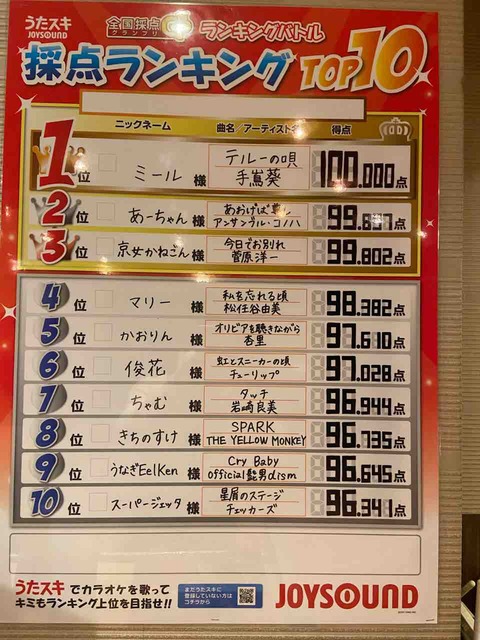 うたスキ
JOYSOUND
全国採点
グランプリ
ランキングバトル
採点ランキング TOP10
ニックネーム 曲名 アーティスト名 得点
1位 ミール 様 テルーの唄
手嶌葵 100.000点
2位 あーちゃん 様 あおげば尊し
アンサンブル・コノハ 99.点
3位 京女かねごん 様 今日でお別れ
菅原洋一 99.802点
4位 マリー 様 私を忘れる頃
松任谷由実 98.382点
5位 かおりん 様 オリビアを聴きながら
杏里 97.610点
6位 俊花 様 虹とスニーカーの頃
チューリップ 97.028点
7位 ちゃむ 様 タッチ
岩崎良美 96.944点
8位 きちのすけ 様 SPARK
THE YELLOW MONKEY 96.735点
9位 うなぎEelKen 様 Cry Baby
Official髭男dism 96.645点
10位 スーパージェッタ 様 星屑のステージ
チェッカーズ 96.341点
うたスキでカラオケを歌って
キミもランキング上位を目指せ!!
まだうたスキに
登録していない方は
コチラから
JOYSOUND